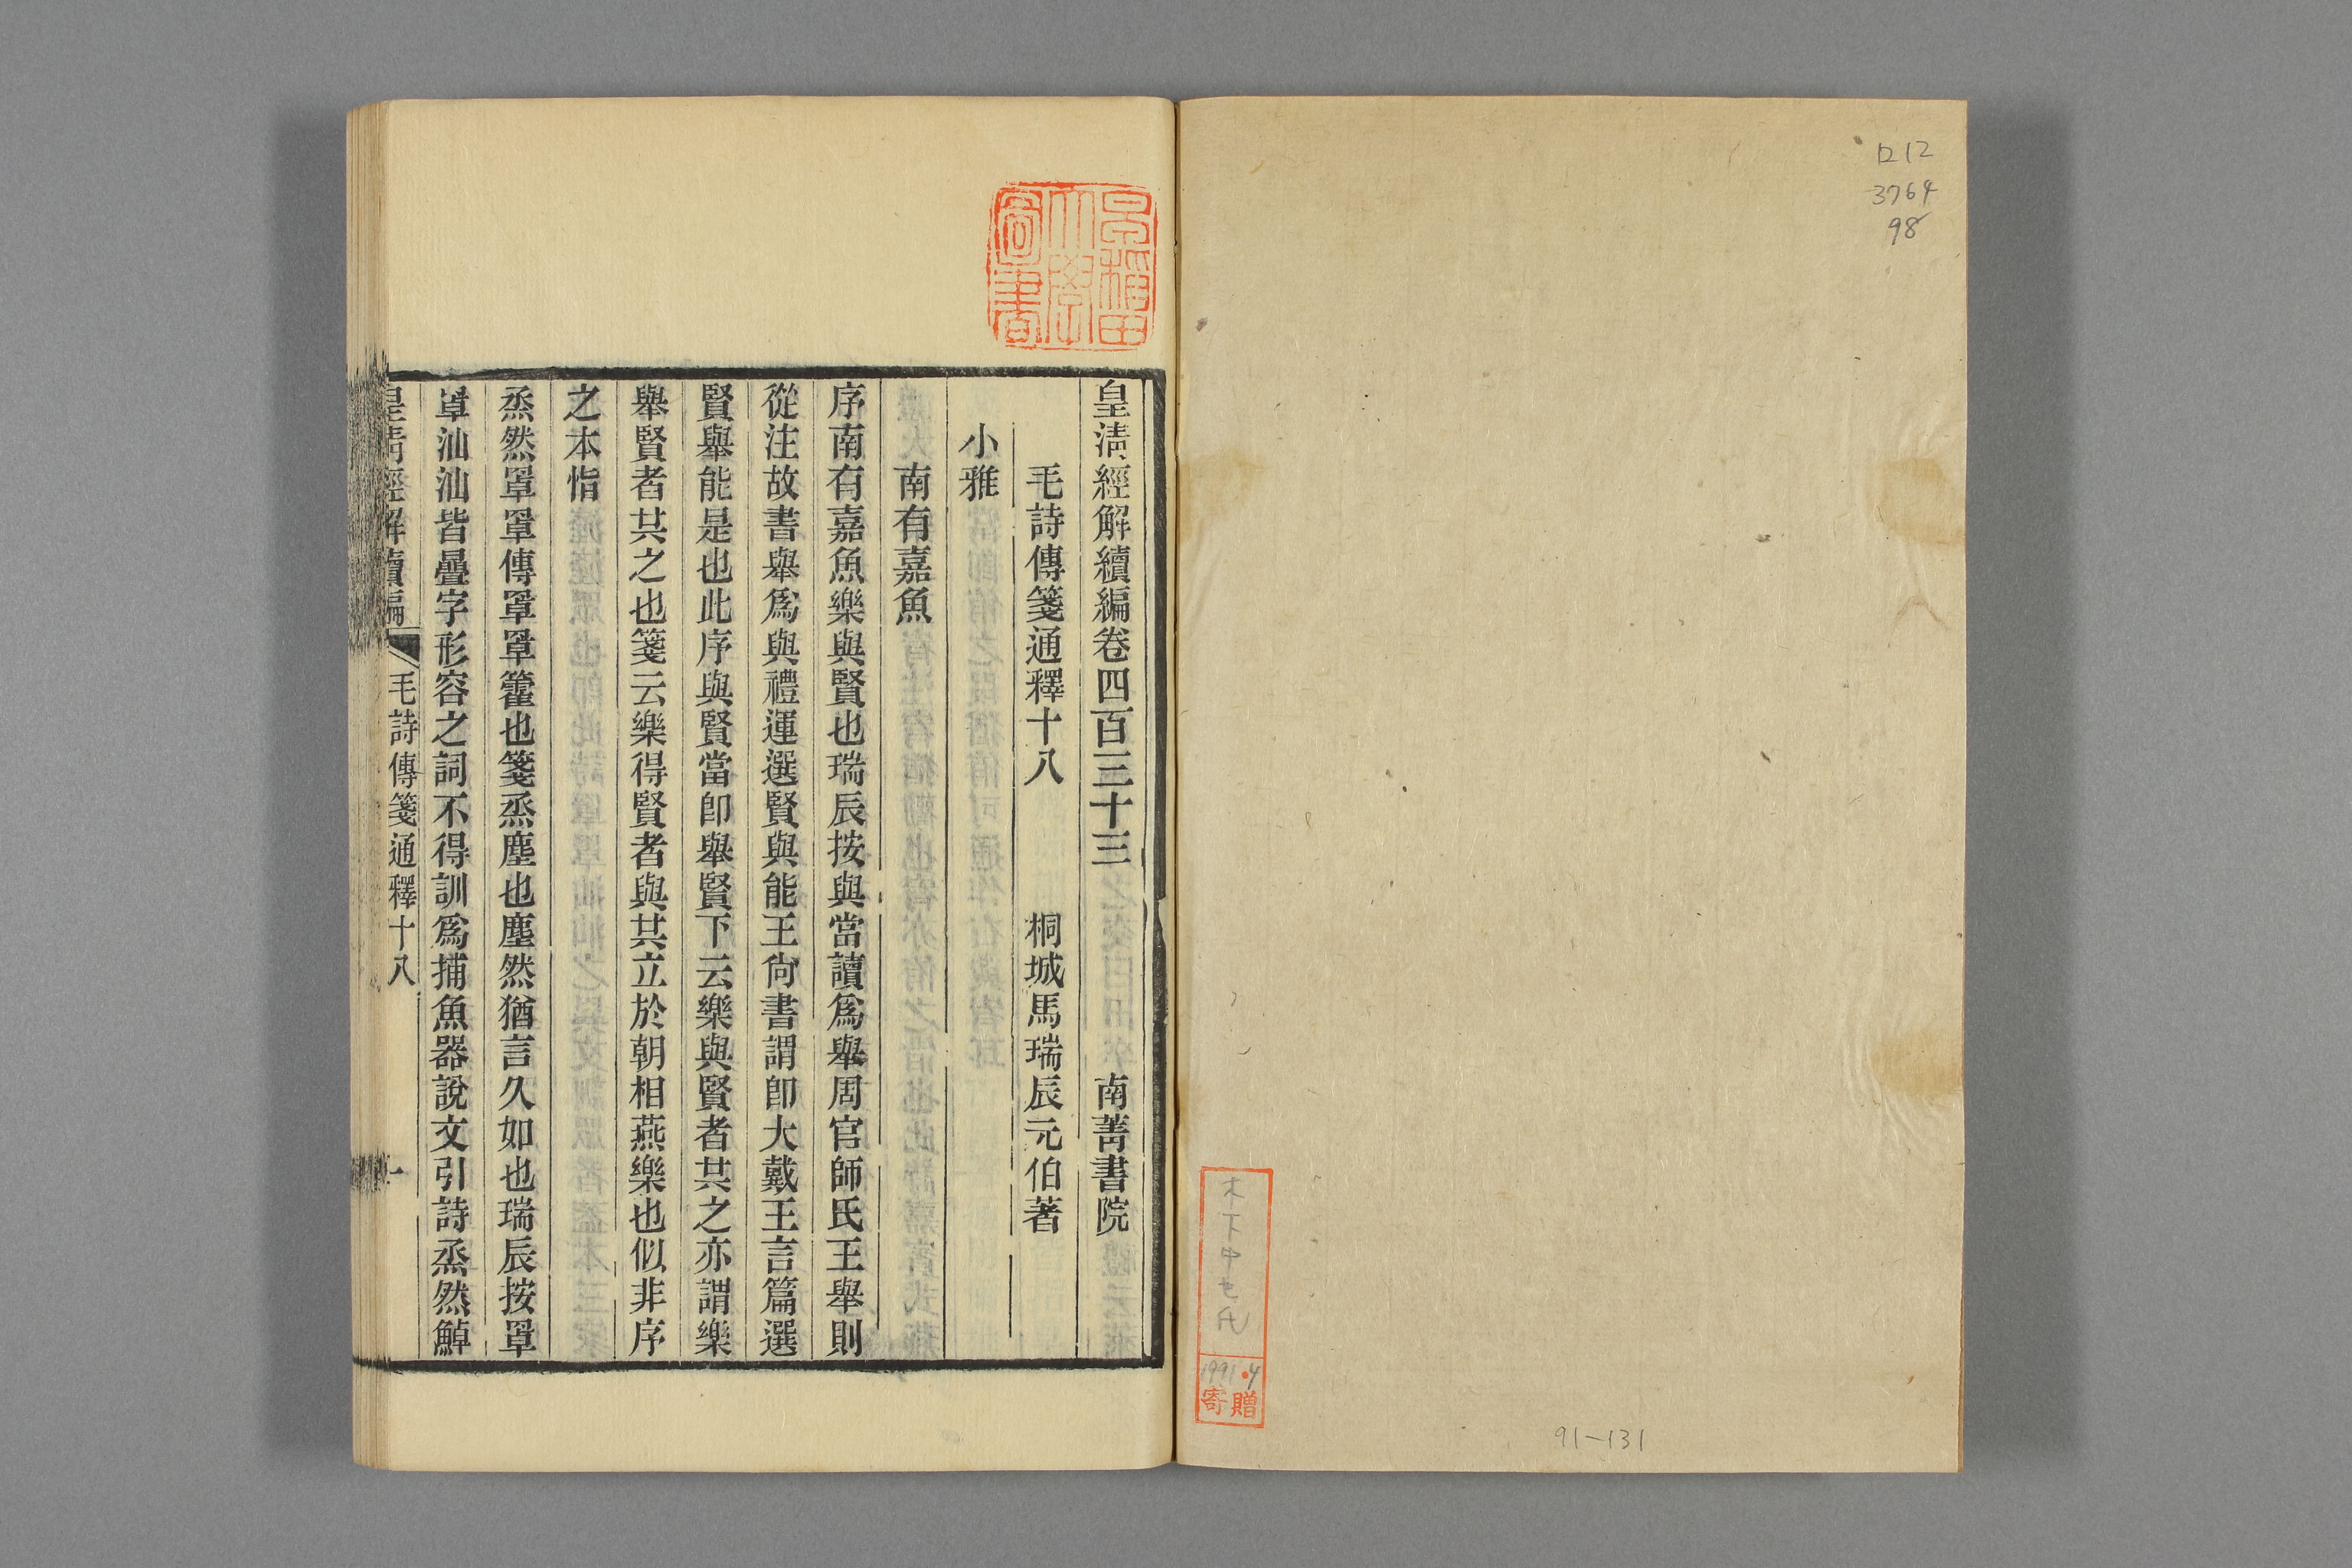 ロ12
3764
98
木下中七氏
1991.4
寄贈
91-131
早稲田大學圖書
皇淸經解續編卷四百三十三
南菁書院
毛詩傳箋通釋十八
桐城馬瑞辰元伯著
小雅
南有嘉魚
序南有嘉魚樂與賢也瑞辰按與當讀爲舉周官師氏王舉則
從注故書舉爲與禮運選賢與能王尙書謂卽大戴王言篇選
賢舉能是也此序與賢當卽舉賢下云樂與賢者共之亦謂樂
舉賢者共之也箋云樂得賢者與共立於朝相燕樂也似非序
之本恉
烝然罩罩傳罩罩籗也箋烝塵也塵然猶言久如也瑞辰按罩
罩汕汕皆曡字形容之詞不得訓爲捕魚器說文引詩烝然鯙
皇淸經解續編
毛詩傳箋通釋十八
一